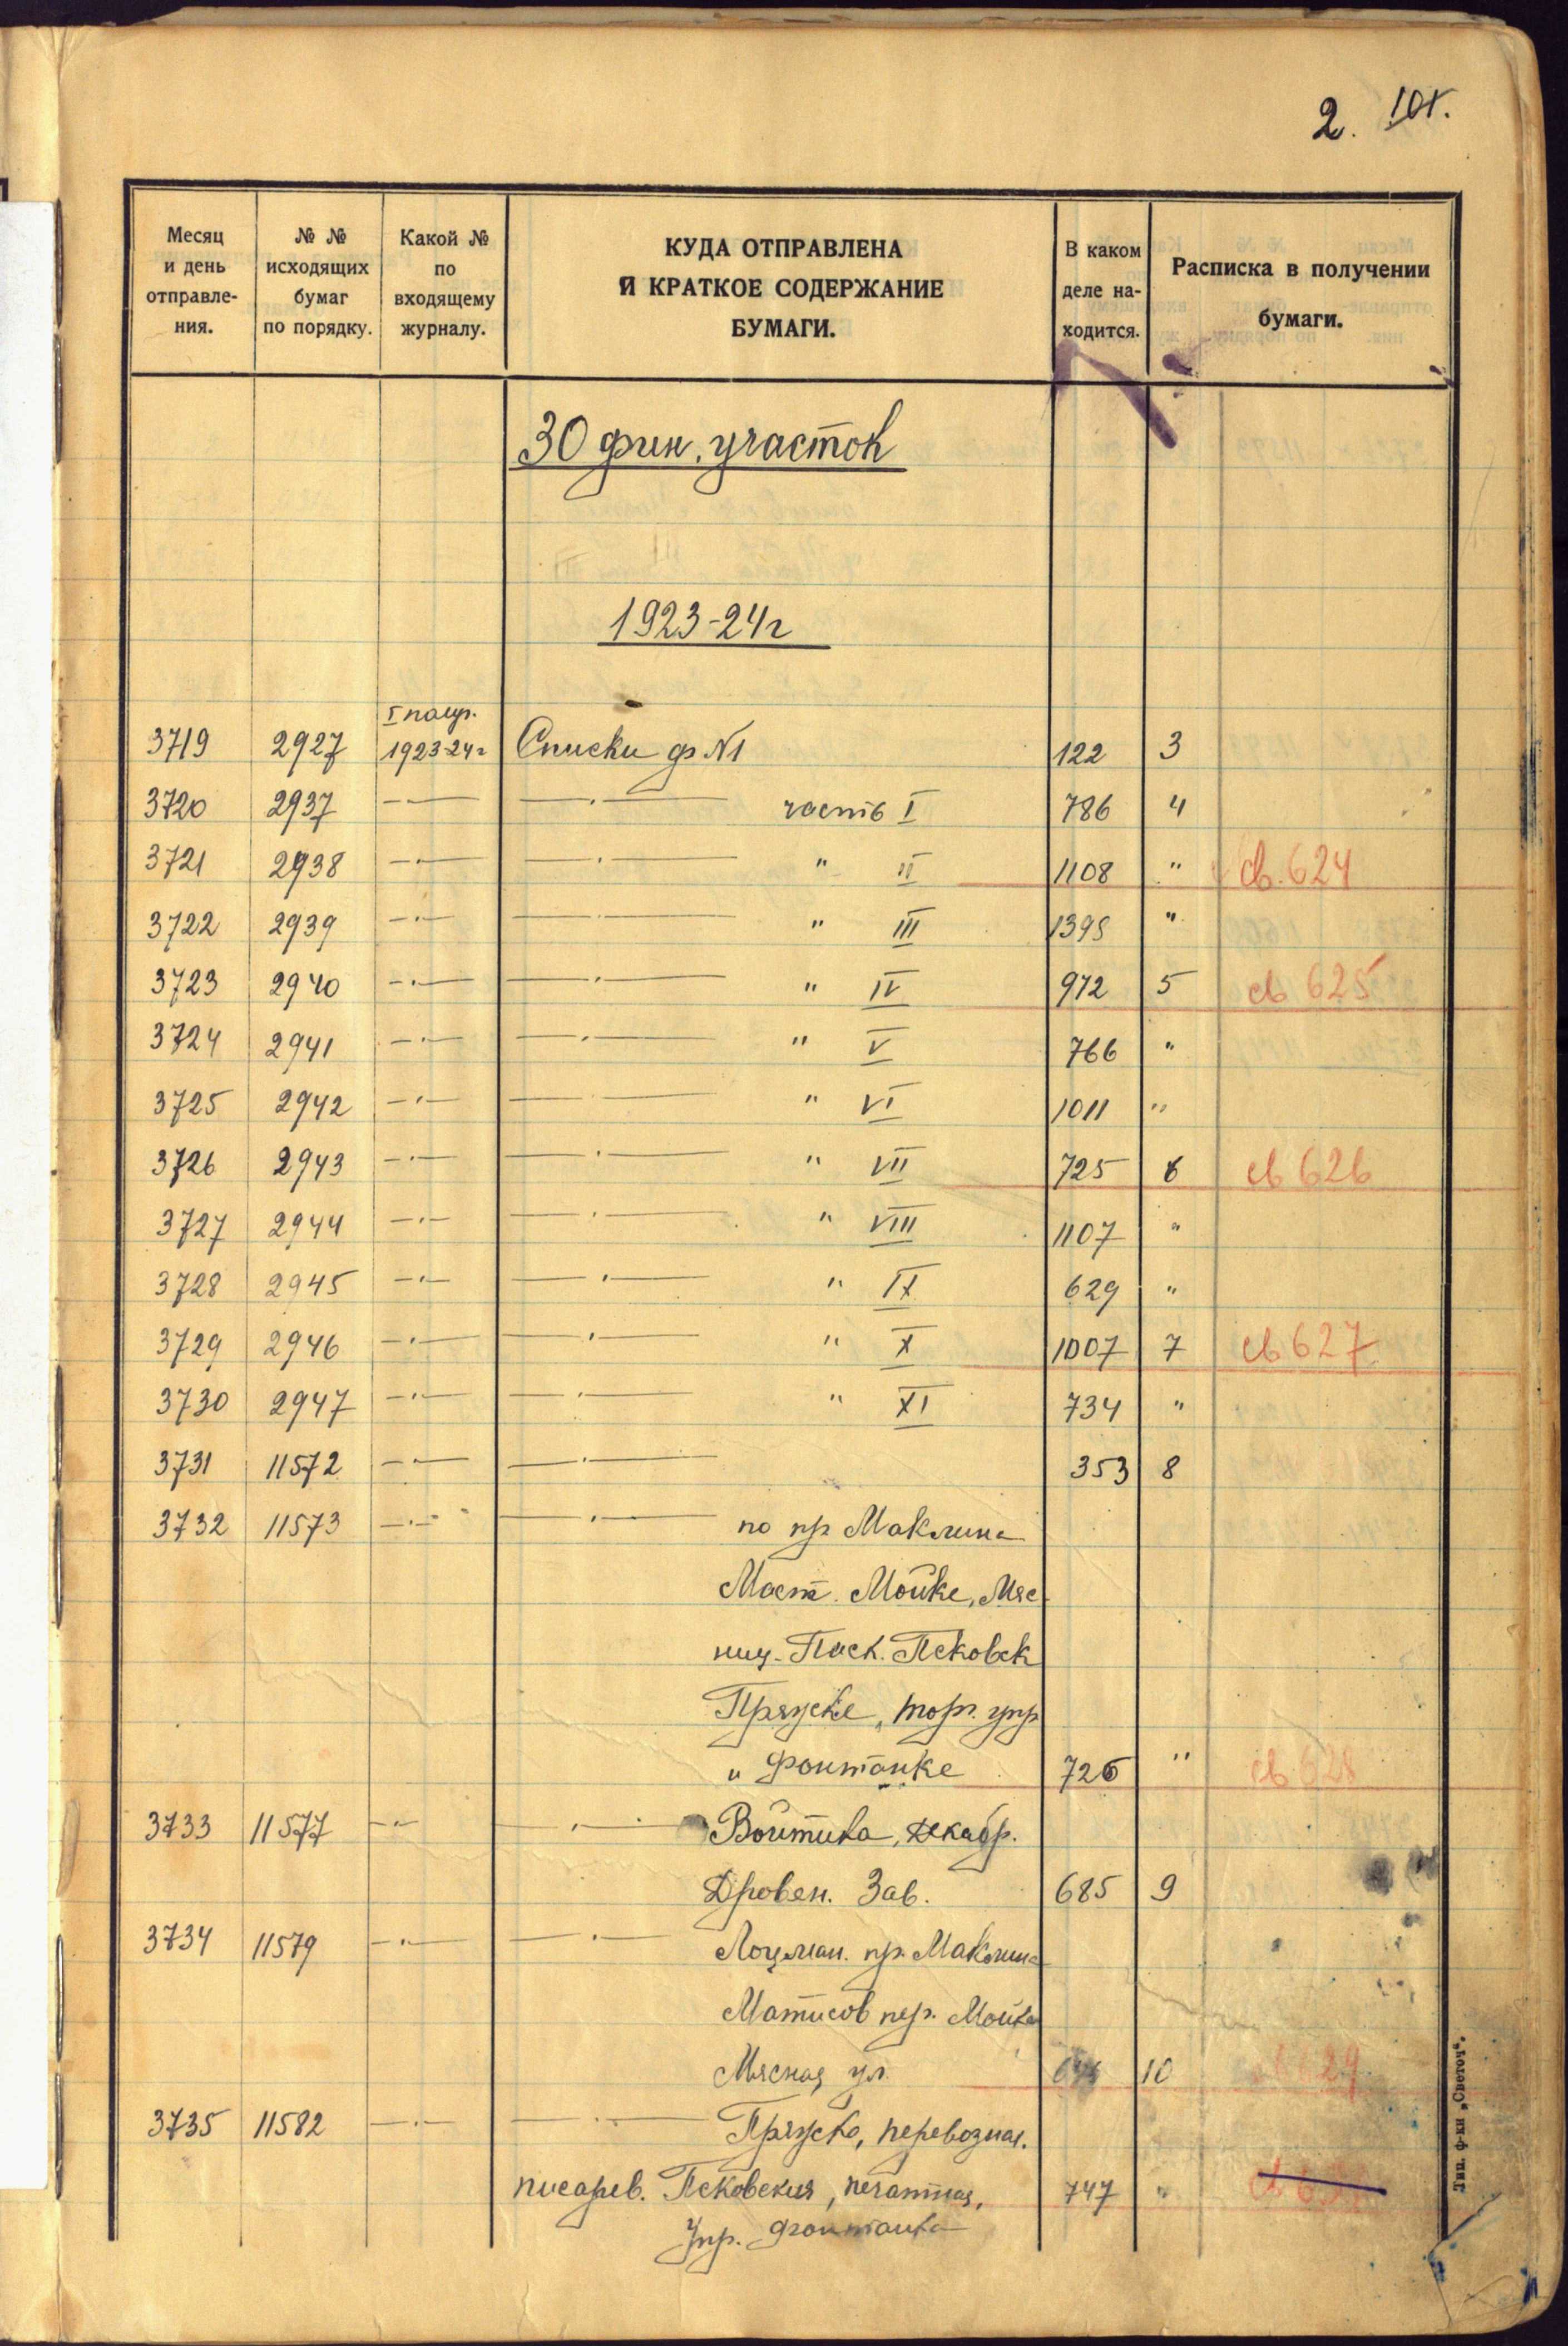 2. 101.
Месяц и день отправле- ния.
№ № исходящих бумаг по порядку.
Какой № по входящему журналу.
КУДА ОТПРАВЛЕНА И КРАТКОЕ СОДЕРЖАНИЕ БУМАГИ.
В каком деле на- ходится.
Расписка в получении бумаги.
30 фин. участок
1923-24г
I полуг.
3719 2927 1923-24г Списки ф №1 122 3
3720 2937 —·— —·— часть I 786 4
3721 2938 —·— —·— " II 1108 " св. 624
3722 2939 —·— —·— " III 1395 "
3723 2940 —·— —·— " IV 972 5 св 625
3724 2941 —·— —·— " V 766 "
3725 2942 —·— —·— " VI 1011 "
3726 2943 —·— —·— " VII 725 6 св 626
3727 2944 —·— —·— " VIII 1107 "
3728 2945 —·— —·— " IX 629 "
3729 2946 —·— —·— " X 1007 7 св 627
3730 2947 —·— —·— " XI 734 "
3731 11572 —·— —·— 353 8
3732 11573 —·— —·— по пр Маклина
Маст. Мойке, Мяс
ниц. Пасп. Псковск
Пряжке, торг. упр
и Фонтанке 726 " св 628
3733 11577 —·— —·— Войтика, Декабр.
Дровен. Зав. 685 9
3734 11579 —·— —·— Лоцман. пр. Маклина
Матисов пер. Мойка
Мясная ул. 10 св 629
3735 11582 —·— —·— Пряжка, перевозная.
писарев. Псковская, печатная, 747 "
Упр. Фонтанка
Тип. ф-ки „Светоч".